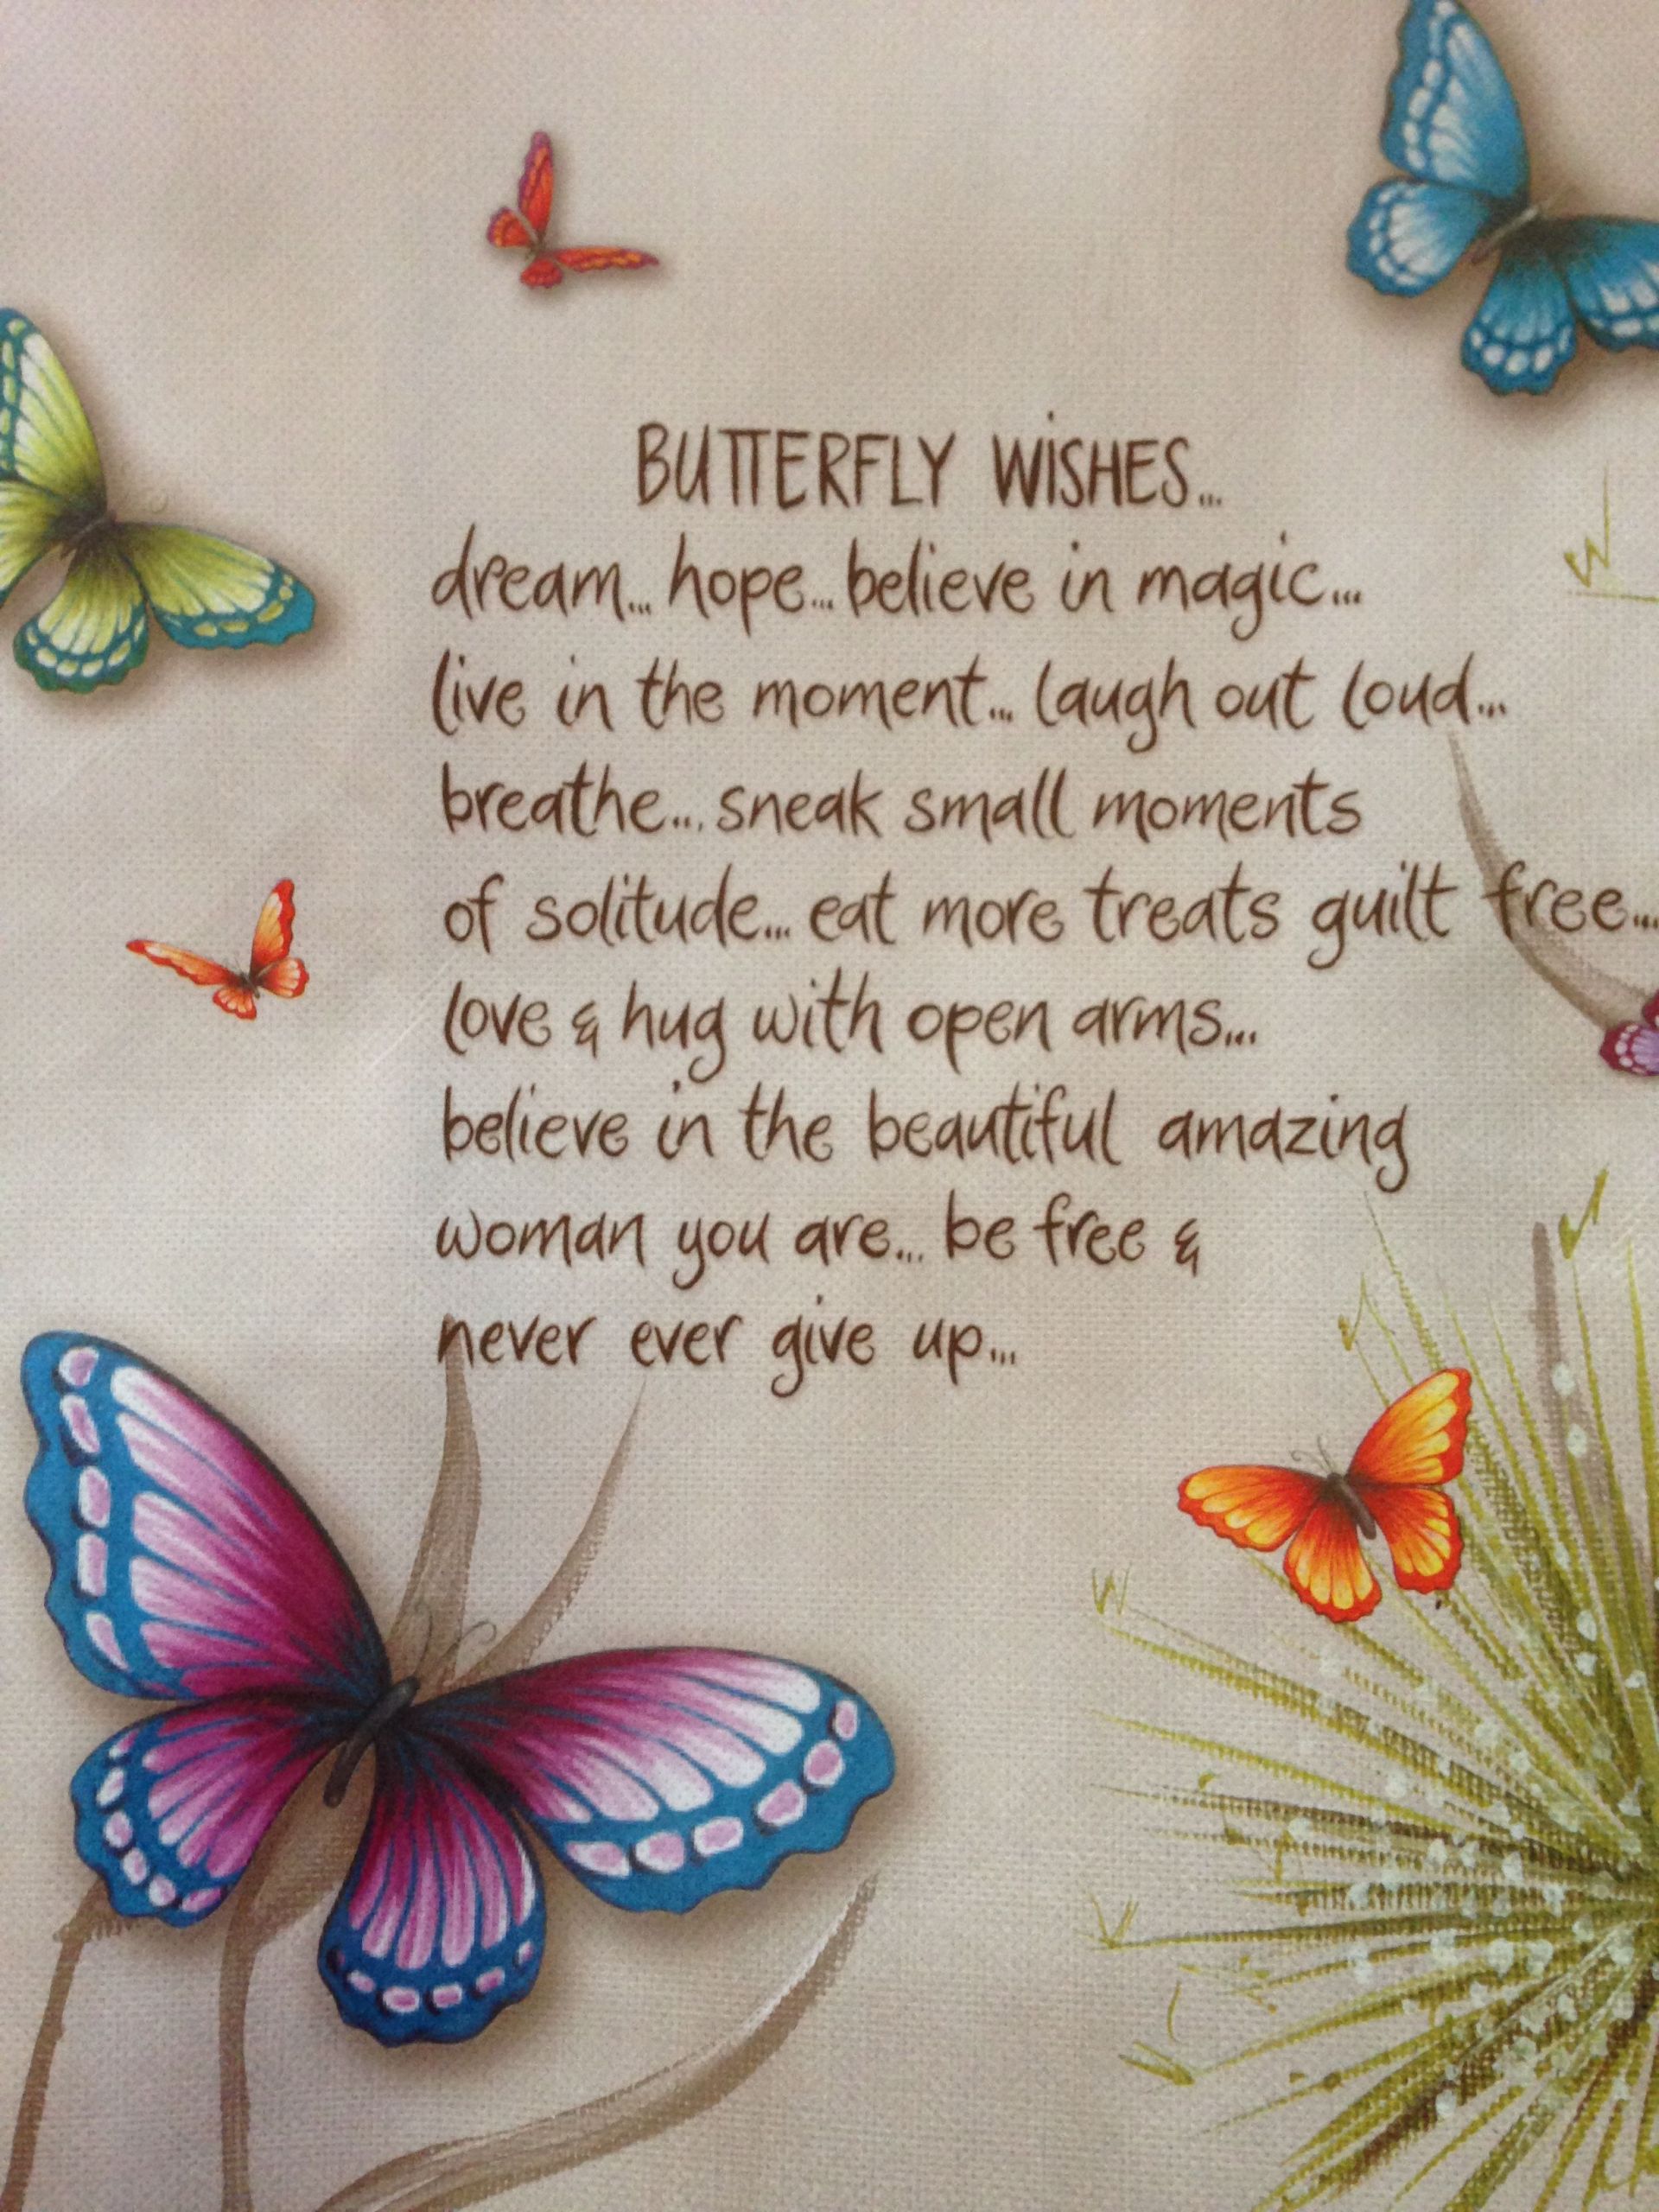 BUTTERFLY WiSHES...
dream... hope... believe in magic...
live in the moment... laugh out loud...
breathe.... sneak small moments
of solitude... eat more treats guilt free...
love & hug with open arms...
believe in the beautiful amazing
woman you are... be free &
never ever give up...